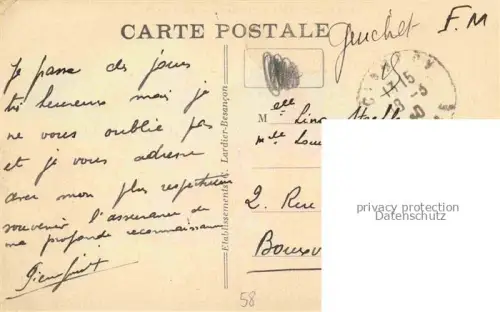 CARTE POSTALE
Guichet F.M
Je passe des jours
très heureux mais je
ne vous oublie pas
et je vous adresse
avec mon plus respectueux
souvenir l'assurance de
ma profonde reconnaissance
Etablissements C. Lardier-Besançon
M elle
Melle
2. Rue
17-15
privacy protection
Datenschutz
58